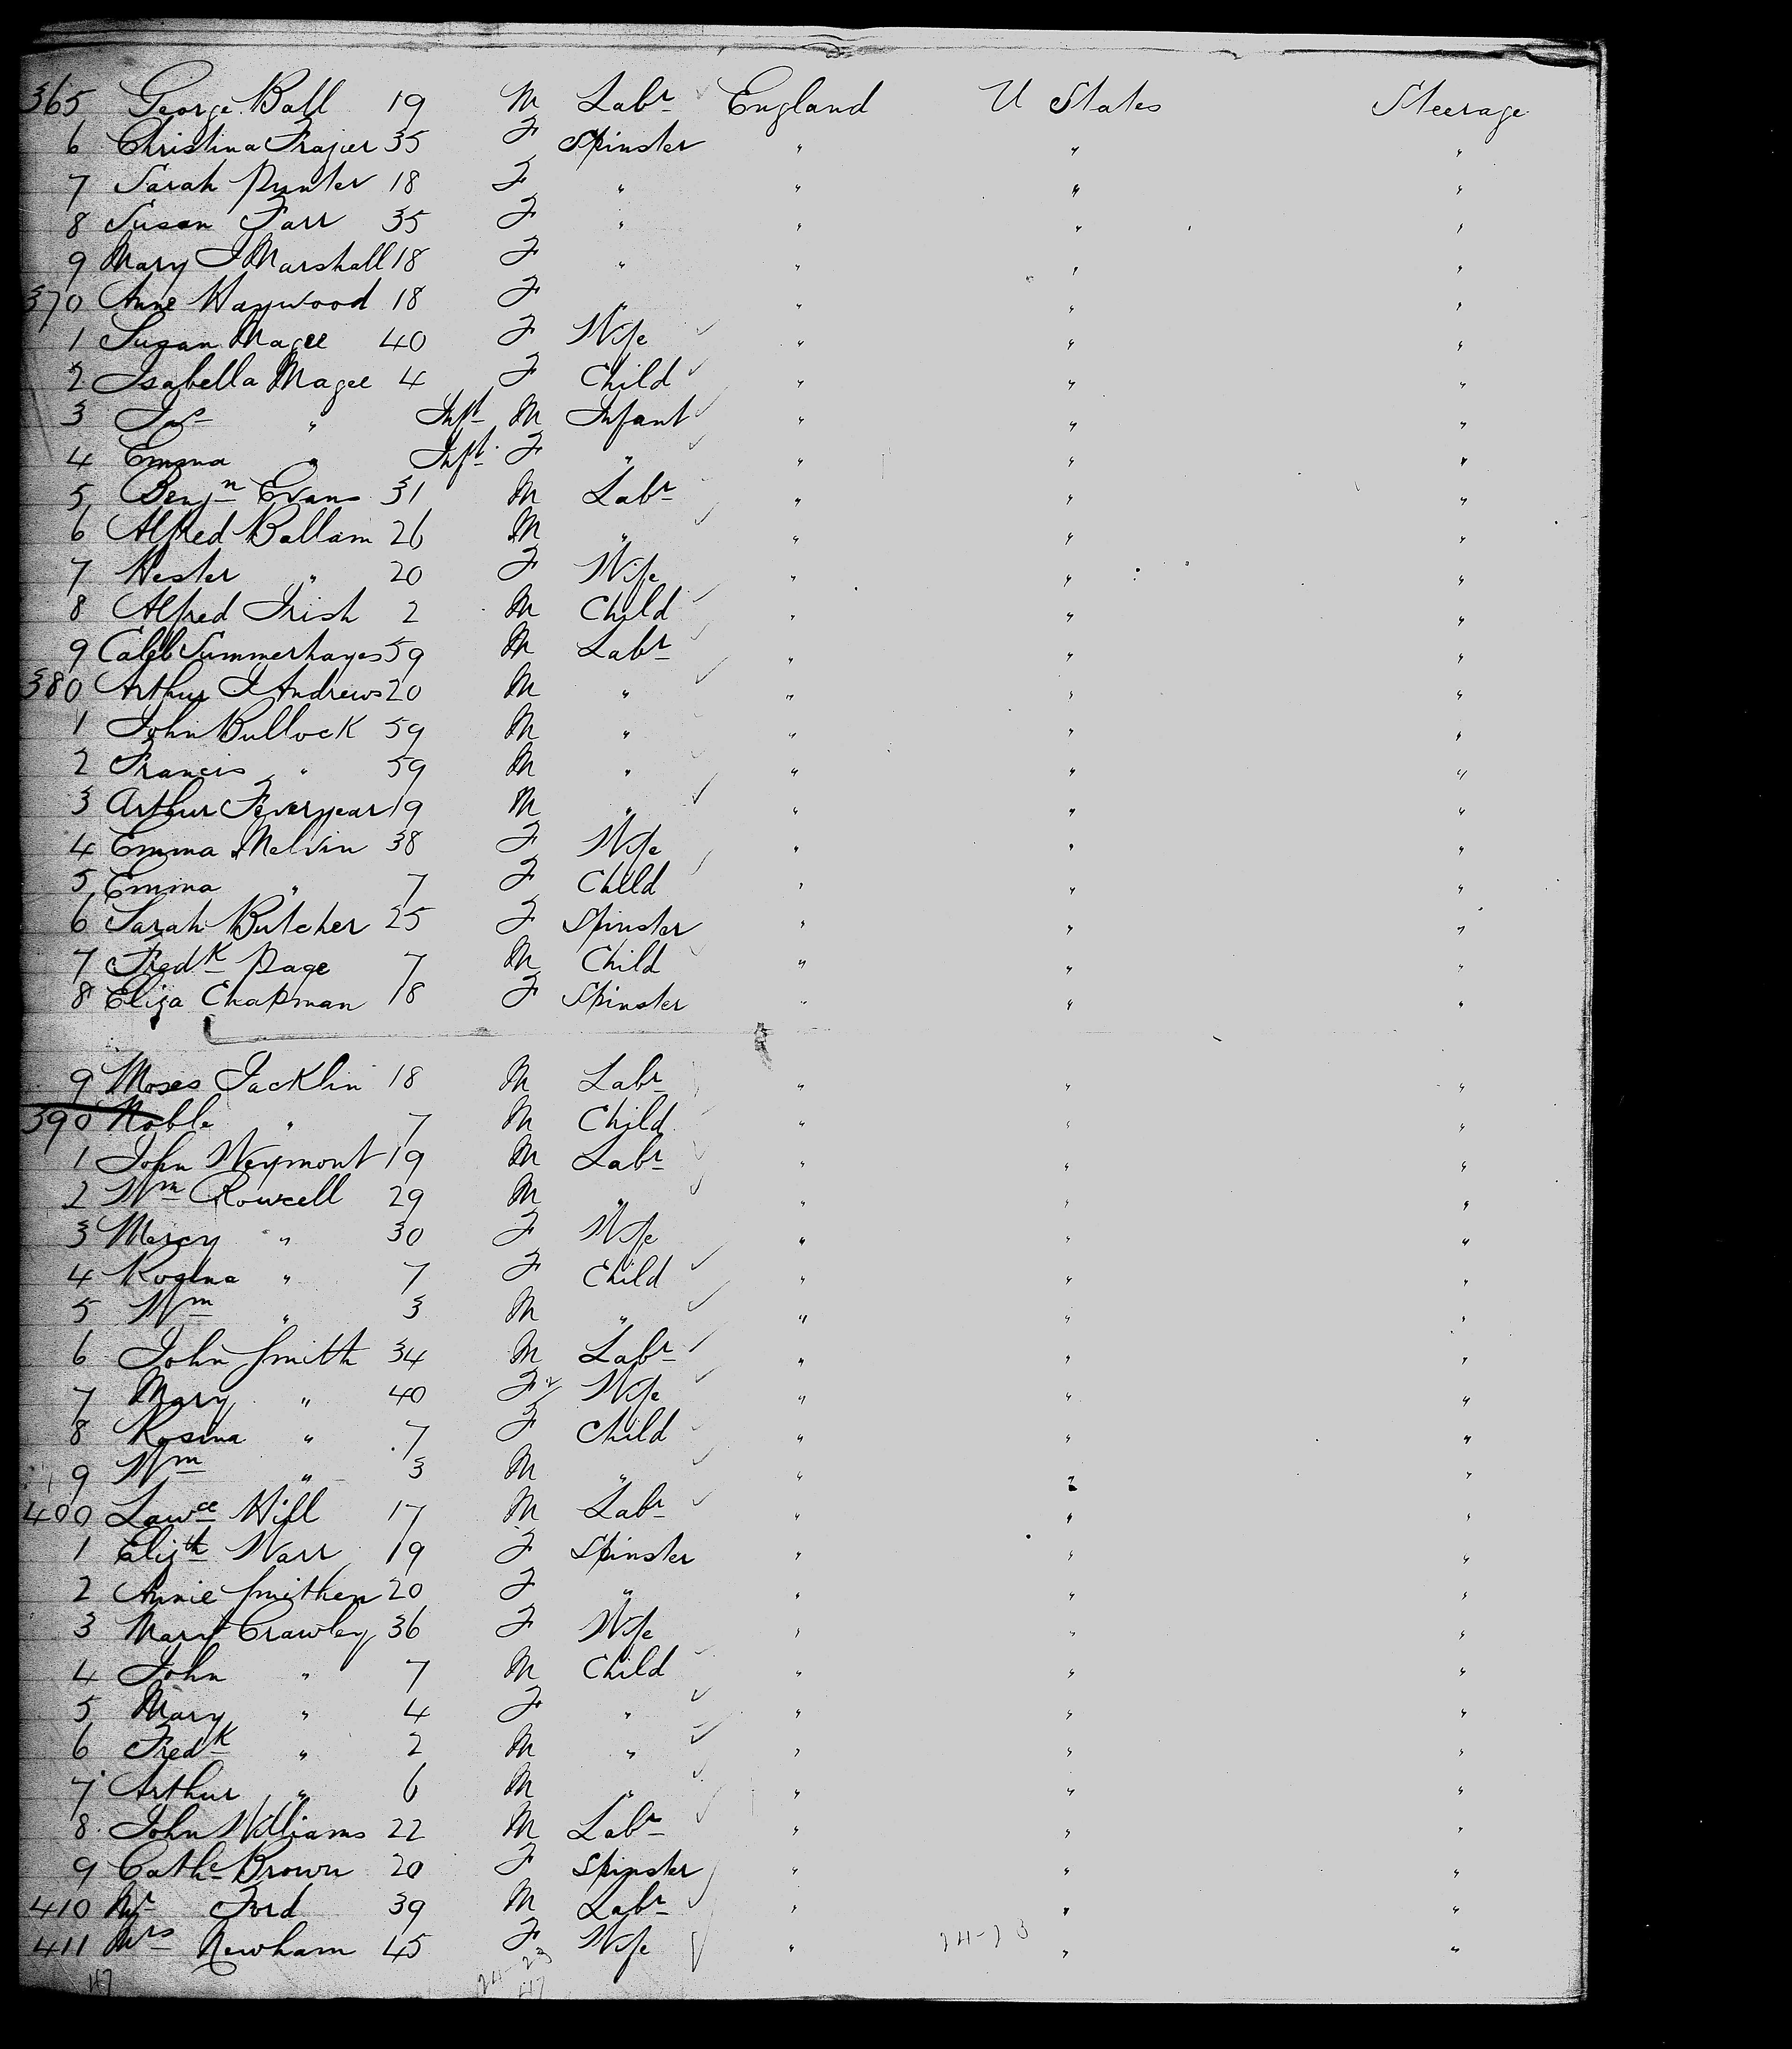 365 George Ball 19 M Labr England U States Steerage
6 Christina Frazier 35 F Spinster " " "
7 Sarah Punter 18 F " " " "
8 Susan Farr 35 F " " " "
9 Mary J Marshall 18 F " " " "
370 Anne Haywood 18 F " " " "
1 Susan Magee 40 F Wife " " "
2 Isabella Magee 4 F Child " " "
3 Jas " Inft M Infant " " "
4 Emma " Inft F " " " "
5 Benjn Evans 31 M Labr " " "
6 Alfred Ballam 26 M " " " "
7 Hester " 20 F Wife " " "
8 Alfred Irish 2 M Child " " "
9 Caleb Summerhayes 59 M Labr " " "
380 Arthur J Andrews 20 M " " " "
1 John Bullock 59 M " " " "
2 Francis " 59 M " " " "
3 Arthur Feveryear 19 M " " " "
4 Emma Melvin 38 F Wife " " "
5 Emma " 7 F Child " " "
6 Sarah Butcher 25 F Spinster " " "
7 Fredk Page 7 M Child " " "
8 Eliza Chapman 18 F Spinster " " "
9 Moses Jacklin 18 M Labr " " "
390 Noble " 7 M Child " " "
1 John Weymont 19 M Labr " " "
2 Wm Rowcell 29 M " " " "
3 Mercy " 30 F Wife " " "
4 Rogina " 7 F Child " " "
5 Wm " 3 M " " " "
6 John Smith 34 M Labr " " "
7 Mary " 40 F Wife " " "
8 Rosina " 7 F Child " " "
9 Wm " 3 M " " " "
400 Lawce Hill 17 M Labr " " "
1 Elizth Warr 19 F Spinster " " "
2 Annie Smithen 20 F " " " "
3 Mary Crawley 36 F Wife " " "
4 John " 7 M Child " " "
5 Mary " 4 F " " " "
6 Fredk " 2 M " " " "
7 Arthur " 6 M " " " "
8 John Williams 22 M Labr " " "
9 Cathe Brown 20 F Spinster " " "
410 Mr Ford 39 M Labr " " "
411 Mrs Newham 45 F Wife " " "
24-23
47 24-23
47